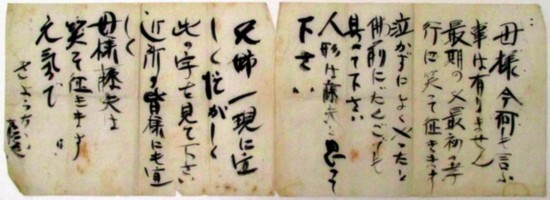 母様今何も言ふ
事は有りません
最期の父最初の孝
行に笑って征きます
泣かずによくやったと
仏前にだんごでも
具へて下さい
人形は藤夫と思って
下さい
兄姉一現に宜
しく
此の字を見て下さい
近所の皆様にも宜
しく
母様藤夫は
笑って征きます
元気で
さようなら